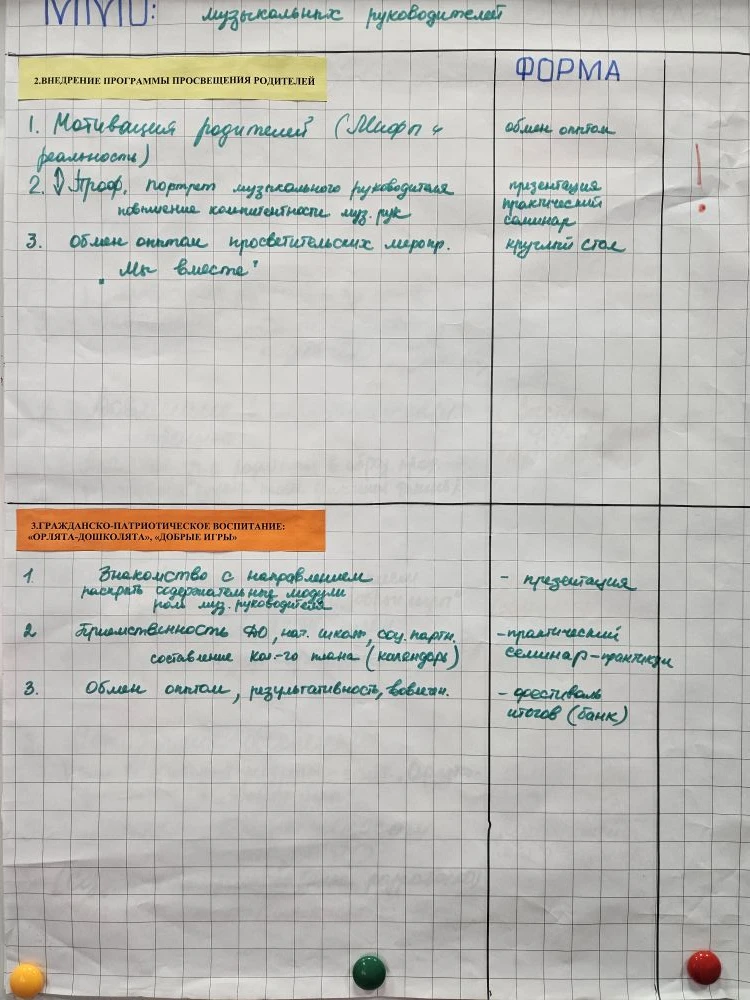 ММО:
музыкальных руководителей
2.ВНЕДРЕНИЕ ПРОГРАММЫ ПРОСВЕЩЕНИЯ РОДИТЕЛЕЙ
ФОРМА
1. Мотивация родителей (Мифы и
реальность)
обмен опытом
2. Проф. портрет музыкального руководителя
повышение компитентности муз. рук
презентация
практический
семинар
!
3. Обмен опытом просветительских меропр.
"Мы вместе"
круглый стол
3.ГРАЖДАНСКО-ПАТРИОТИЧЕСКОЕ ВОСПИТАНИЕ:
«ОРЛЯТА-ДОШКОЛЯТА», «ДОБРЫЕ ИГРЫ»
1. Знакомство с направлением
раскрыть содержательные модули
роль муз. руководителя
- презентация
2 Приемственность ДО, нач. школы, соц. партн.
составление кал.-го плана (календарь)
- практический
семинар-практикум
3. Обмен опытом, результативность, вовлечен.
- фестиваль
итогов (банк)